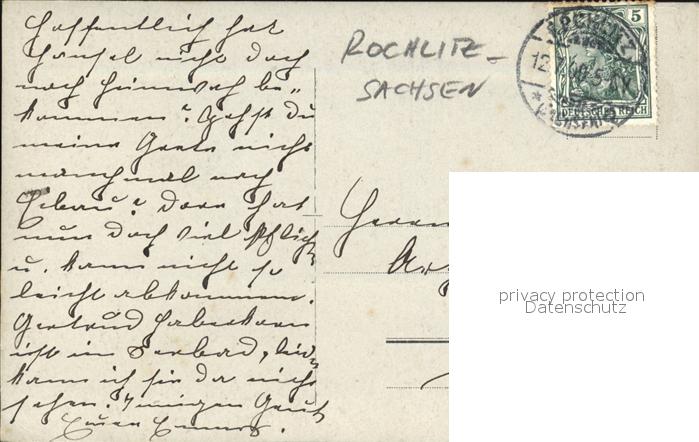 Hoffentlich hat
Hansel nicht doch
noch Heimweh be-
kommen? Gehst Du
meine Grete nicht
manchmal nach
Eibau? Dora hat
nun doch viel Pflicht
u. kann nicht so
leicht abkommen.
Gertrud Haberkorn
ist im Seebad, leider
kann ich sie da nicht
sehen. Innigen Gruß
Euer
ROCHLITZ-
SACHSEN
5
12
DEUTSCHES REICH
Herrn
privacy protection
Datenschutz